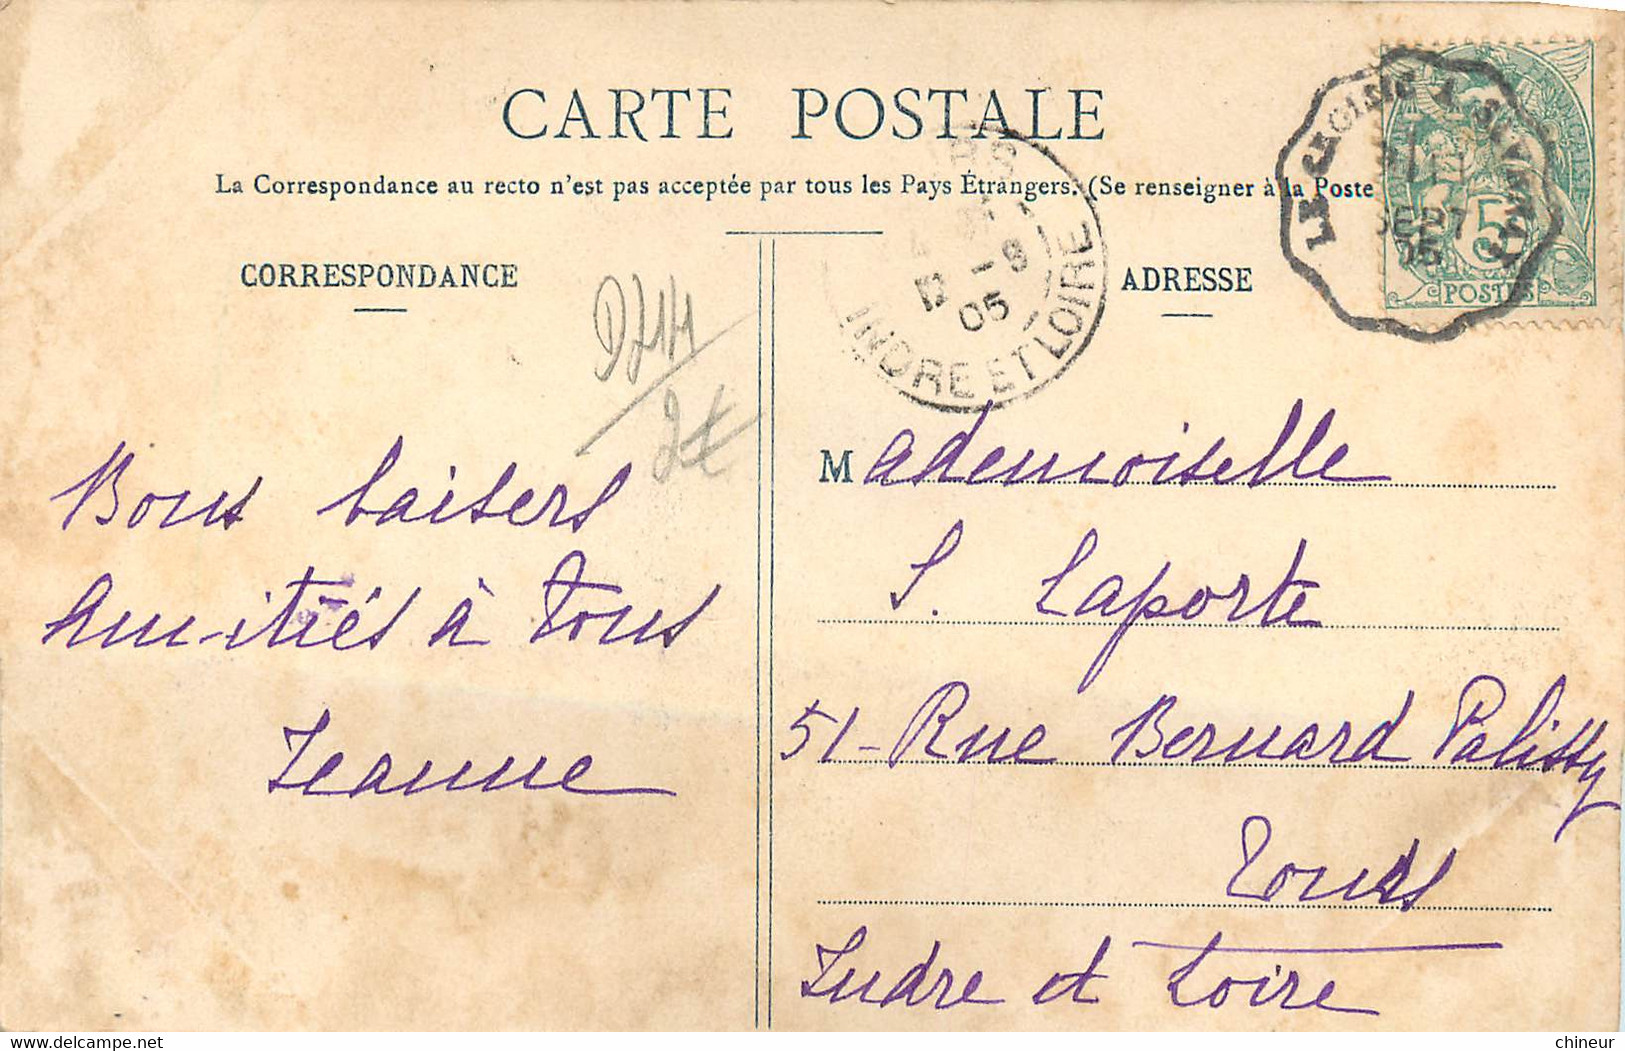 CARTE POSTALE
La Correspondance au recto n'est pas acceptée par tous les Pays Étrangers. (Se renseigner à la Poste
CORRESPONDANCE
ADRESSE
LE CROISIC A
SEPT
05
5
POSTES
-9
05
INDRE ET LOIRE
2€
Bons baisers
Amitiés à tous
Jeanne
Mademoiselle
S. Laporte
51 - Rue Bernard Palissy
Tours
Indre et Loire
chineur